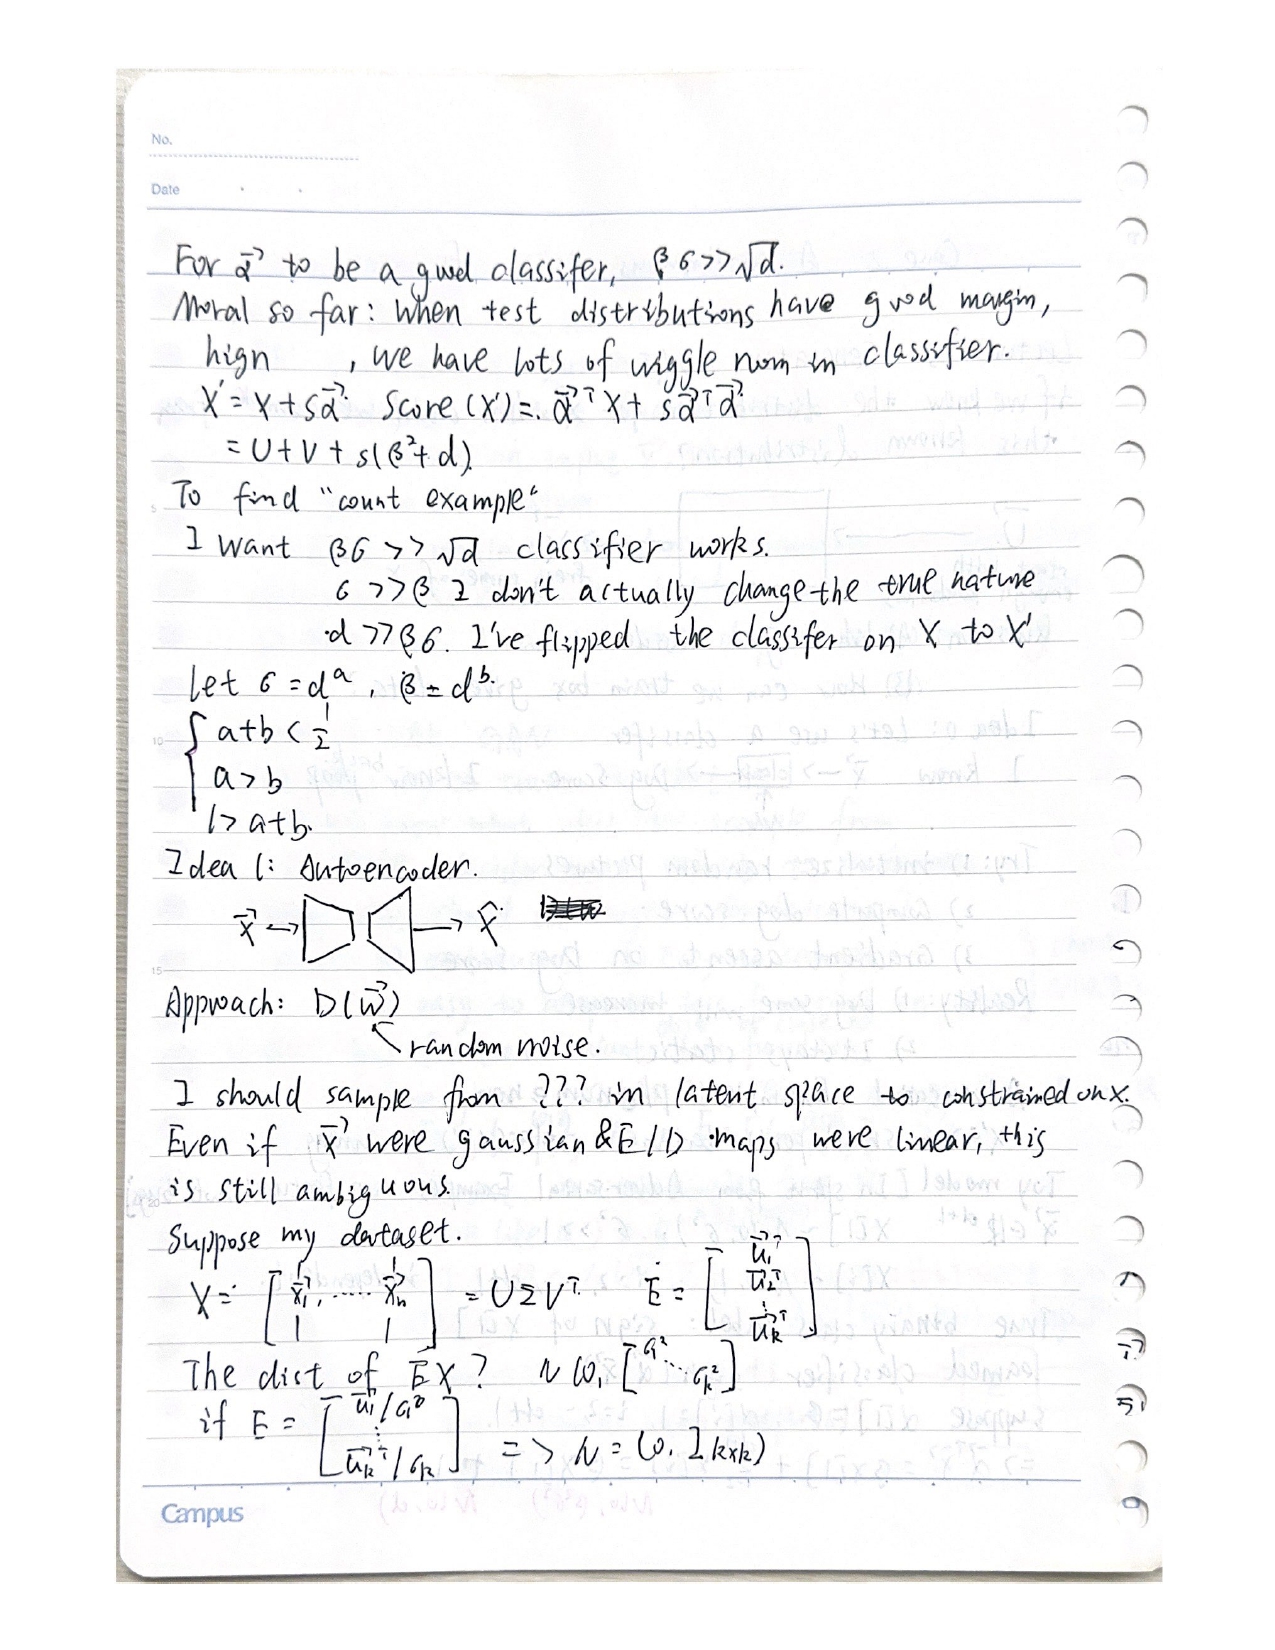 No.
Date
For α⃗ to be a good classifer, βσ >> √d.
Moral so far: when test distributions have good margin,
hign , we have lots of wiggle room in classifier.
X' = X + Sα⃗. Score (X') =. α⃗ᵀX + Sα⃗ᵀα⃗
= U + V + s(β² + d).
To find "count example"
I want βσ >> √d classifier works.
σ >> β I don't actually change the true nature
d >> βσ. I've flipped the classifer on X to X'
Let σ = dᵃ, β = dᵇ.
a+b < 1/2
a > b
1 > a+b.
Idea 1: Autoencoder.
x⃗ → → x̂
Approach: D(w⃗)
random noise.
I should sample from ??? in latent space to constrained on x.
Even if x⃗ were gaussian & E/D maps were linear, this
is still ambiguous.
Suppose my dataset.
X = [x⃗₁, ...... x⃗ₙ] = UΣVᵀ. E = [u⃗₁ᵀ u⃗₂ᵀ ⋮ u⃗ₖᵀ]
The dict of EX? N(0, [σ₁² ⋱ σₖ²]
if E = [u⃗₁ᵀ/σ₁ ⋮ u⃗ₖᵀ/σₖ] => N = (0, I k×k)
Campus